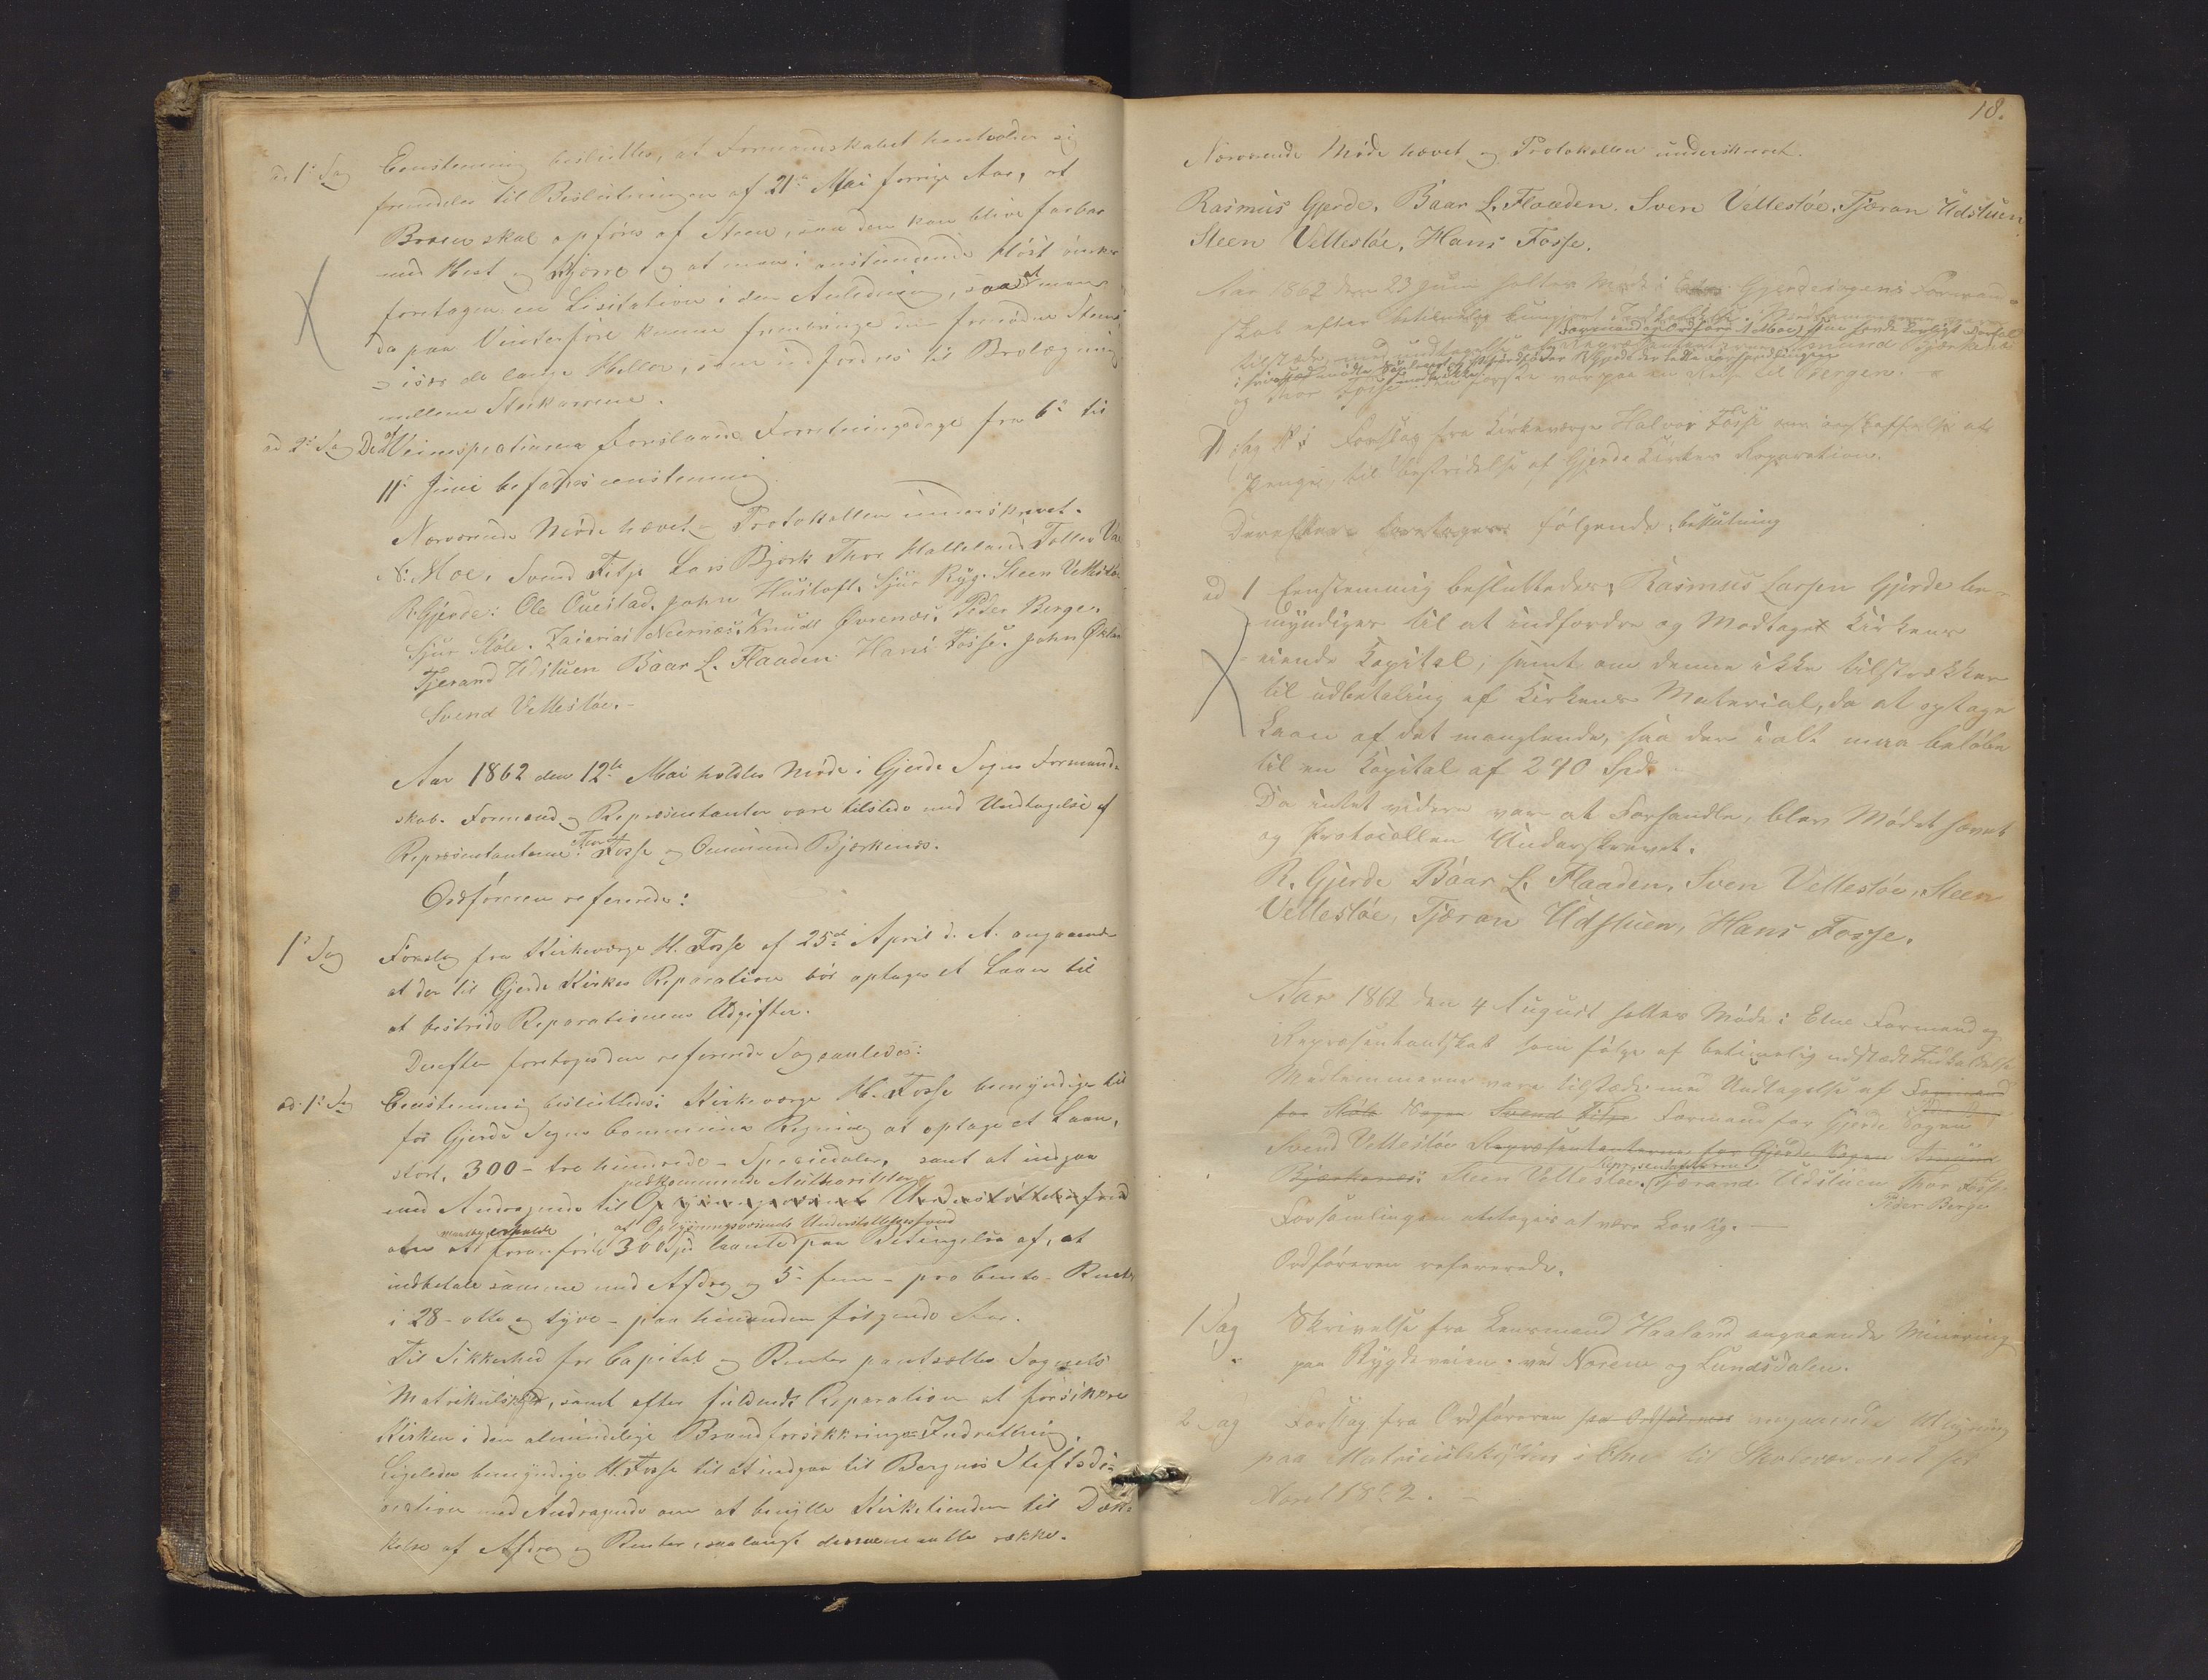 ad 1ste Sag Eenstemmig besluttes, at Formandskabet henholder sig
fremdeles til Beslutningen af 21de Mai forrige Aar, at
Broen skal opføres af Steen, saa den kan blive farbar
med Hest og Kjærre og at man i anstundende Høst ønsker
foretagen en Lisitation i den Anledning, saa at man
da paa Vinterføre kunne frembringe den fornødne Steen
især de lange Heller, som udfordres til Brolægning
mellem Steenkarrene.
ad 2den Sag De af Veiinspectionen foreslaaede Forretningsdage fra 6te til
11te Juni befaldes eenstemmig.
Nærværende Møde hævet – Protokollen underskrevet.
N: Moe. Svend Fitje Lars Bjørk Thor Halleland Tollev
R. Gjerde: Ole Ouestad. John Hustoft. Sjur Ryg. Steen Vettesløe
Sjur Støle. Zacarias Neernæs. Knudt Øvrenæs. Peder Berge.
Tjerand Udstuen Baar L. Flaaden Hans Fosse. John
Svend Vettesløe. –
Aar 1862 den 12te Mai holdtes Møde i Gjerde Sogns Formand-
skab. Formænd og Repræsentanter vare tilstede med Undtagelse af
Repræsentanterne: Thor Fosse og Ommund Bjørkenæs.
Ordføreren refererede:
1ste Sag Forslag fra Kirkeværge H. Fosse af 25de April d. A. angaaende
at der til Gjerde Kirkes Reparation bør optages et Laan til
at bestride Reparationens Udgifter.
Derefter foretoges den refererede Sag saaledes:
ad. 1ste Sag Eenstemmig besluttedes: Kirkeværge H. Fosse bemyndiges til
for Gjerde Sogns Communes Regning at optage et Laan,
stort, 300 – tre hundrede – Speciedaler, samt at indgaa
vedkommende Authoriteter
med Andragende til Oplysningsvæsenets Understøttelsesfond
maatte erholde af Oplysningsvæsenets Understøttelsesfond
om at foranførte 300 Spd. laante paa Betingelse af, at
indbetale samme med Afdrag og 5 – fem – pro Cento – Rente
i 28 – otte og tyve – paa hinanden følgende Aar.
Til Sikkerhed for Capital og Renter pantsættes Sognets
Matrikulskyld, samt efter fuldendt Reparation at forsikkre
Kirken i den almindelige Brandforsikkrings-Indretning.
Ligeledes bemyndiges H. Fosse til at indgaa til Bergens Stiftsdi-
rection med Andragende om at benytte Kirketienden til Dæk-
kelse af Afdrag og Renter, saalangt denne maatte række.
18.
Nærværende Møde hævet og Protokollen underskrevet.
Rasmus Gjerde. Baar L. Flaaden. Sven Vettesløe. Tjæran Udstuen
Steen Vettesløe. Hans Fosse.
Aar 1862 den 23 Juni holtes Møde i Gjerdesognens Formand-
skab efter betimelig kungjort Indkaldelse. Medlemmerne vare
tilstæde med undtagelse af
og Thor Fosse var paa en Reise til Bergen.
Sag No 1 Forslag fra Kirkeværge Halvor Fosse om anskaffelse af
Penge, til bestridelse af Gjerde Kirkes Reparation.
Derefter foretoges følgende beslutning
ad 1 Eenstemmig besluttedes, Rasmus Larsen Gjerde be-
myndiges til at indfordre og Modtage Kirkens
eiende Kapital, samt om denne ikke tilstrækker
til udbetaling af Kirkens Material, da at optage
Laan af det manglende, saa der i alt maa beløbe
til en Kapital af 240 Spd.
Da intet videre var at Forhandle, blev Mødet hævet
og Protocollen Underskrevet.
R. Gjerde Baar L. Flaaden, Sven Vettesløe, Steen
Vettesløe, Tjæran Udstuen, Hans Fosse.
Aar 1862 den 4 August holtes Møde i Etne Formand og
Repræsentantskab som følge af betimelig udstædt Indkaldelse
Medlemmerne vare tilstæde med Undtagelse af Formand
for Støle Sogn Svend Fitje Formand for Gjerde Sogn
Svend Vettesløe Repræsentanterne for Gjerde Sogn
Repræsentanterne
Bjørkenæs Steen Vettesløe. Tjærand Udstuen Thor Fosse
Peder Berge
Forsamlingen antoges at være Lovlig. –
Ordføreren refererede.
1 Sag Skrivelse fra Lensmand Haaland angaaende Minering
paa Bygdeveien: ved Norem og Lundsdalen.
2 Sag Forslag fra Ordføreren angaaende Udligning
paa Matriculskylden i Etne til Skolevæsenet for
Aaret 1862. –